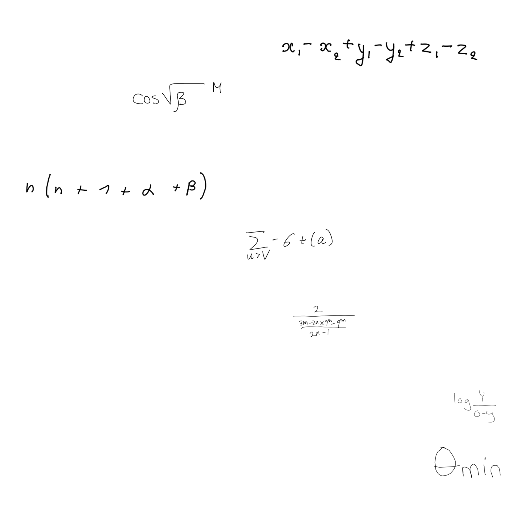 x₁ - x₂ + y₁ - y₂ + z₁ - z₂
cos√β M
n (n + 1 + α + β)
∑ u>V - 6 + (a)
log Y
θmin